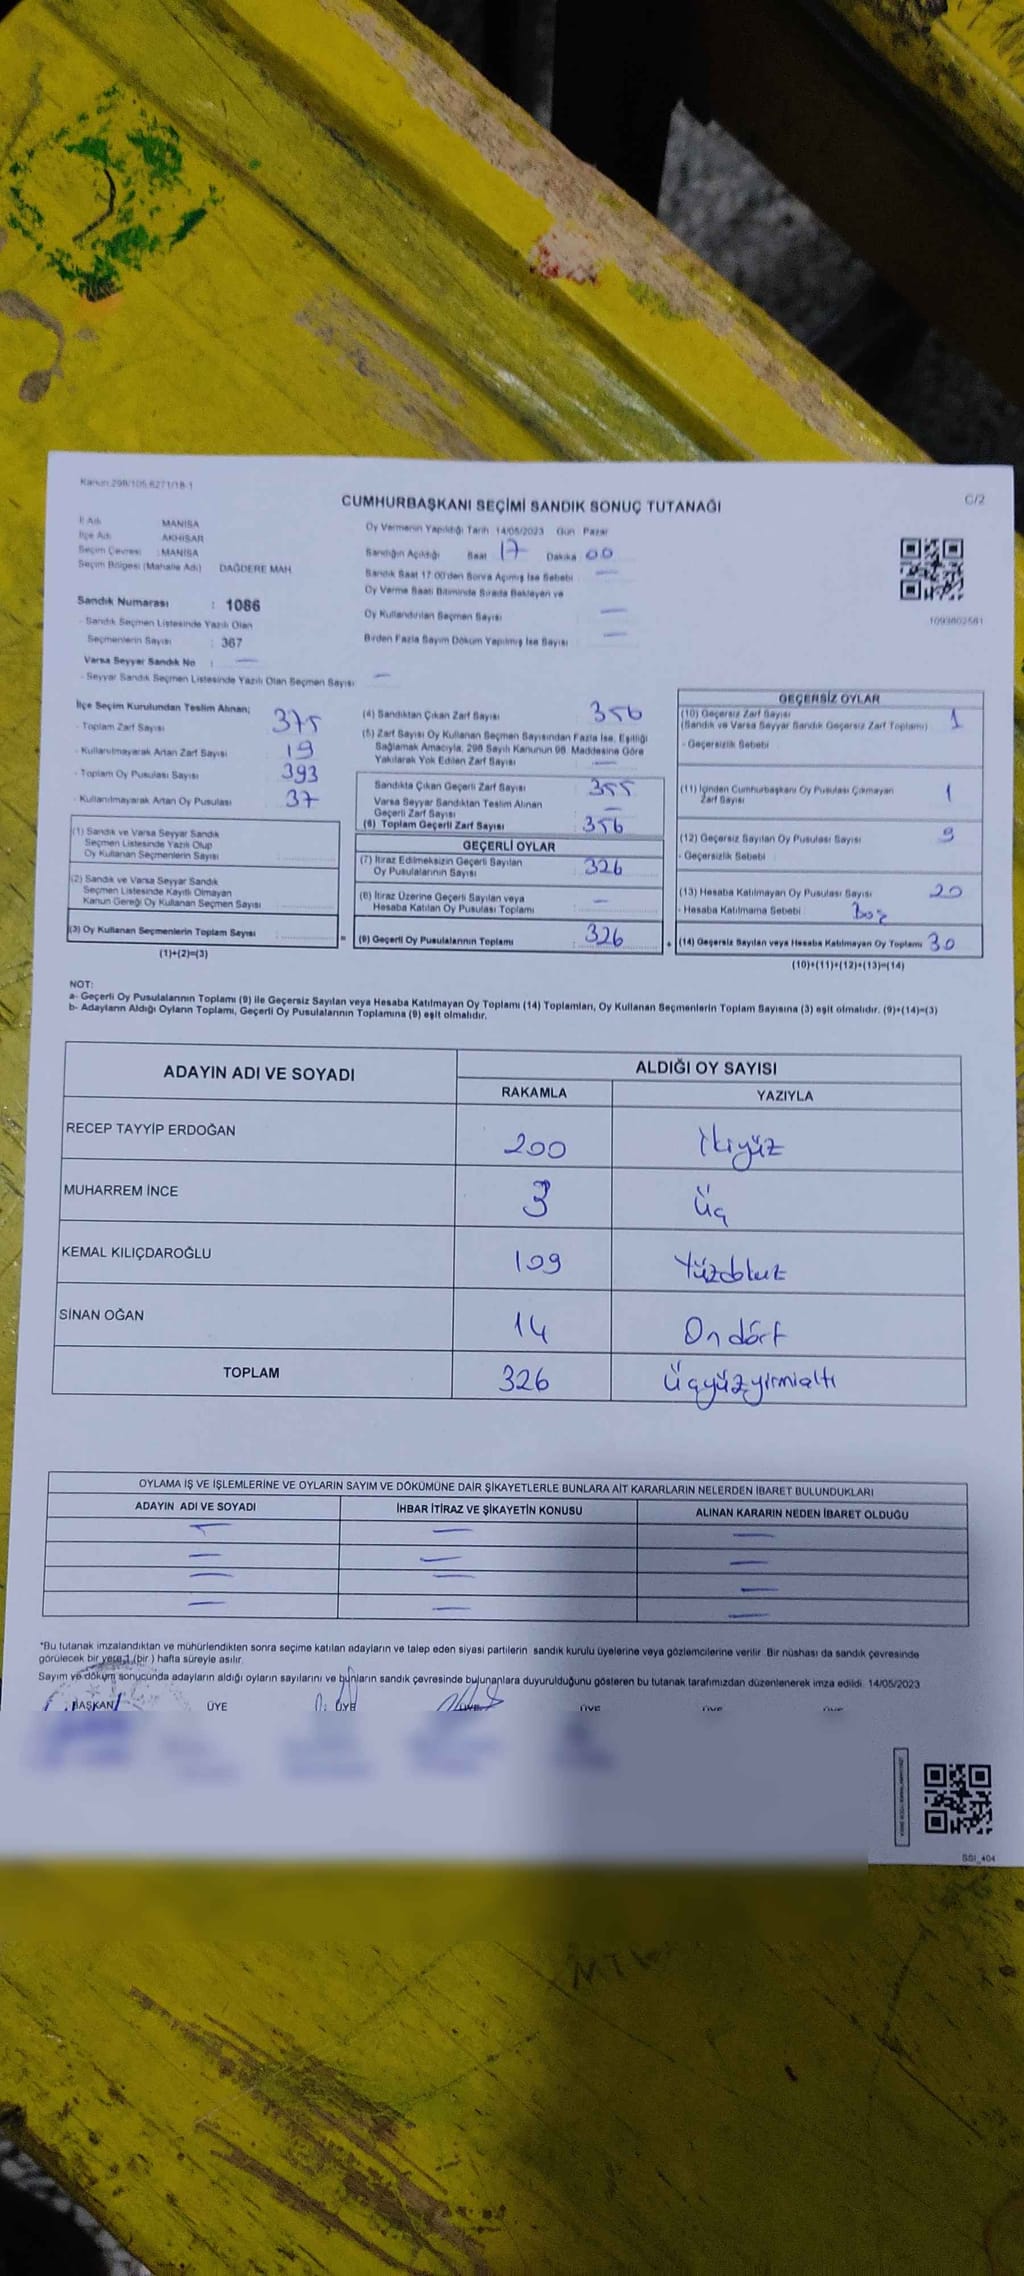 Kanun:298/105,6271/18-1
CUMHURBAŞKANI SEÇİMİ SANDIK SONUÇ TUTANAĞI
C/2
İl Adı MANİSA
İlçe Adı AKHİSAR
Seçim Çevresi : MANİSA
Seçim Bölgesi (Mahalle Adı) DAĞDERE MAH.
Sandık Numarası : 1086
- Sandık Seçmen Listesinde Yazılı Olan
Seçmenlerin Sayısı : 367
Varsa Seyyar Sandık No : —
- Seyyar Sandık Seçmen Listesinde Yazılı Olan Seçmen Sayısı —
Oy Vermenin Yapıldığı Tarih 14/05/2023 Gün Pazar
Sandığın Açıldığı Saat 17 Dakika 00
Sandık Saat 17:00'den Sonra Açımış İse Sebebi —
Oy Verme Saati Bitiminde Sırada Bekleyen ve
Oy Kullandırılan Seçmen Sayısı —
Birden Fazla Sayım Döküm Yapılmış İse Sayısı —
1093802581
İlçe Seçim Kurulundan Teslim Alınan;
- Toplam Zarf Sayısı 375
- Kullanılmayarak Artan Zarf Sayısı 19
- Toplam Oy Pusulası Sayısı 393
- Kullanılmayarak Artan Oy Pusulası 37
(1) Sandık ve Varsa Seyyar Sandık
Seçmen Listesinde Yazılı Olup
Oy Kullanan Seçmenlerin Sayısı
(2) Sandık ve Varsa Seyyar Sandık
Seçmen Listesinde Kayıtlı Olmayan
Kanun Gereği Oy Kullanan Seçmen Sayısı
(3) Oy Kullanan Seçmenlerin Toplam Sayısı
(1)+(2)=(3)
(4) Sandıktan Çıkan Zarf Sayısı 356
(5) Zarf Sayısı Oy Kullanan Seçmen Sayısından Fazla İse, Eşitliği
Sağlamak Amacıyla, 298 Sayılı Kanunun 98. Maddesine Göre
Yakılarak Yok Edilen Zarf Sayısı —
Sandıkta Çıkan Geçerli Zarf Sayısı 355
Varsa Seyyar Sandıktan Teslim Alınan
Geçerli Zarf Sayısı —
(6) Toplam Geçerli Zarf Sayısı 356
GEÇERLİ OYLAR
(7) İtiraz Edilmeksizin Geçerli Sayılan
Oy Pusulalarının Sayısı 326
(8) İtiraz Üzerine Geçerli Sayılan veya
Hesaba Katılan Oy Pusulası Toplamı —
= (9) Geçerli Oy Pusulalarının Toplamı 326 +
GEÇERSİZ OYLAR
(10) Geçersiz Zarf Sayısı 1
(Sandık ve Varsa Seyyar Sandık Geçersiz Zarf Toplamı)
- Geçersizlik Sebebi
(11) İçinden Cumhurbaşkanı Oy Pusulası Çıkmayan 1
Zarf Sayısı
(12) Geçersiz Sayılan Oy Pusulası Sayısı
- Geçersizlik Sebebi
(13) Hesaba Katılmayan Oy Pusulası Sayısı 20
- Hesaba Katılmama Sebebi : Boş
(14) Geçersiz Sayılan veya Hesaba Katılmayan Oy Toplamı 30
(10)+(11)+(12)+(13)=(14)
NOT:
a- Geçerli Oy Pusulalarının Toplamı (9) ile Geçersiz Sayılan veya Hesaba Katılmayan Oy Toplamı (14) Toplamları, Oy Kullanan Seçmenlerin Toplam Sayısına (3) eşit olmalıdır. (9)+(14)=(3)
b- Adayların Aldığı Oyların Toplamı, Geçerli Oy Pusulalarının Toplamına (9) eşit olmalıdır.
ADAYIN ADI VE SOYADI ALDIĞI OY SAYISI
RAKAMLA YAZIYLA
RECEP TAYYİP ERDOĞAN 200 İkiyüz
MUHARREM İNCE 3 Üç
KEMAL KILIÇDAROĞLU 109 Yüzdokuz
SİNAN OĞAN 14 Ondört
TOPLAM 326 Üçyüzyirmialtı
OYLAMA İŞ VE İŞLEMLERİNE VE OYLARIN SAYIM VE DÖKÜMÜNE DAİR ŞİKAYETLERLE BUNLARA AİT KARARLARIN NELERDEN İBARET BULUNDUKLARI
ADAYIN ADI VE SOYADI İHBAR İTİRAZ VE ŞİKAYETİN KONUSU ALINAN KARARIN NEDEN İBARET OLDUĞU
— — —
— — —
— — —
— — —
*Bu tutanak imzalandıktan ve mühürlendikten sonra seçime katılan adayların ve talep eden siyasi partilerin sandık kurulu üyelerine veya gözlemcilerine verilir. Bir nüshası da sandık çevresinde
görülecek bir yere 1 (bir) hafta süreyle asılır.
Sayım ve döküm sonucunda adayların aldığı oyların sayılarını ve bunların sandık çevresinde bulunanlara duyurulduğunu gösteren bu tutanak tarafımızdan düzenlenerek imza edildi. 14/05/2023
BAŞKAN ÜYE ÜYE ÜYE ÜYE ÜYE ÜYE
SSI_404